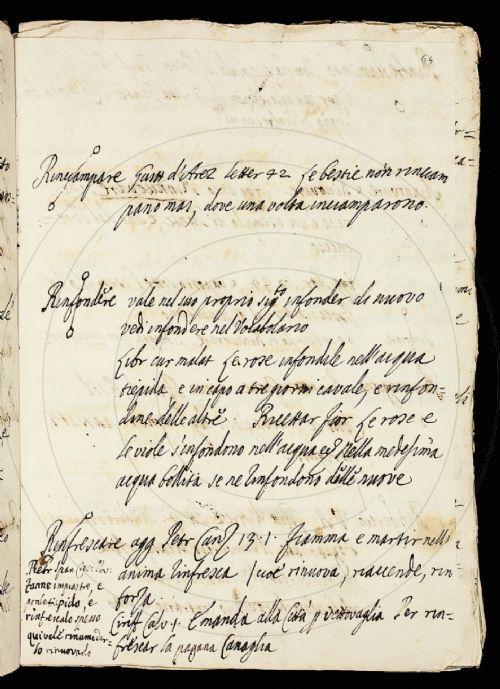 64
Rinciampare Guitt d'Arez letter 42 Le bestie non rinciam
pano mai, dove una volta inciamparono.
Rinfondere vale nel suo proprio sig.to infonder di nuovo
vedi infondere nel Vocabolario
Libr cur malat Le rose infondile nell'acqua
tiepida e in capo a tre giorni cavale, e rinfon-
dine delle altre. Ricettar fior Le rose e
le viole s'infondono nell'acqua Nella medesima
acqua bollita se ne rinfondono delle nuove
Rinfrescare agg Petr Canz 13.1. Fiamma e martir nell'
anima rinfresca / cioè rinnova, riaccende, rin
forza.
Ciriff Calv. 1. E manda alla Città p vettovaglia Per rin-
frescar la pagana Canaglia
fanne impiastro, e
ponlo tiepido, e
rinfrescalo spesso
qui vale rinnuover-
lo rinnovarlo